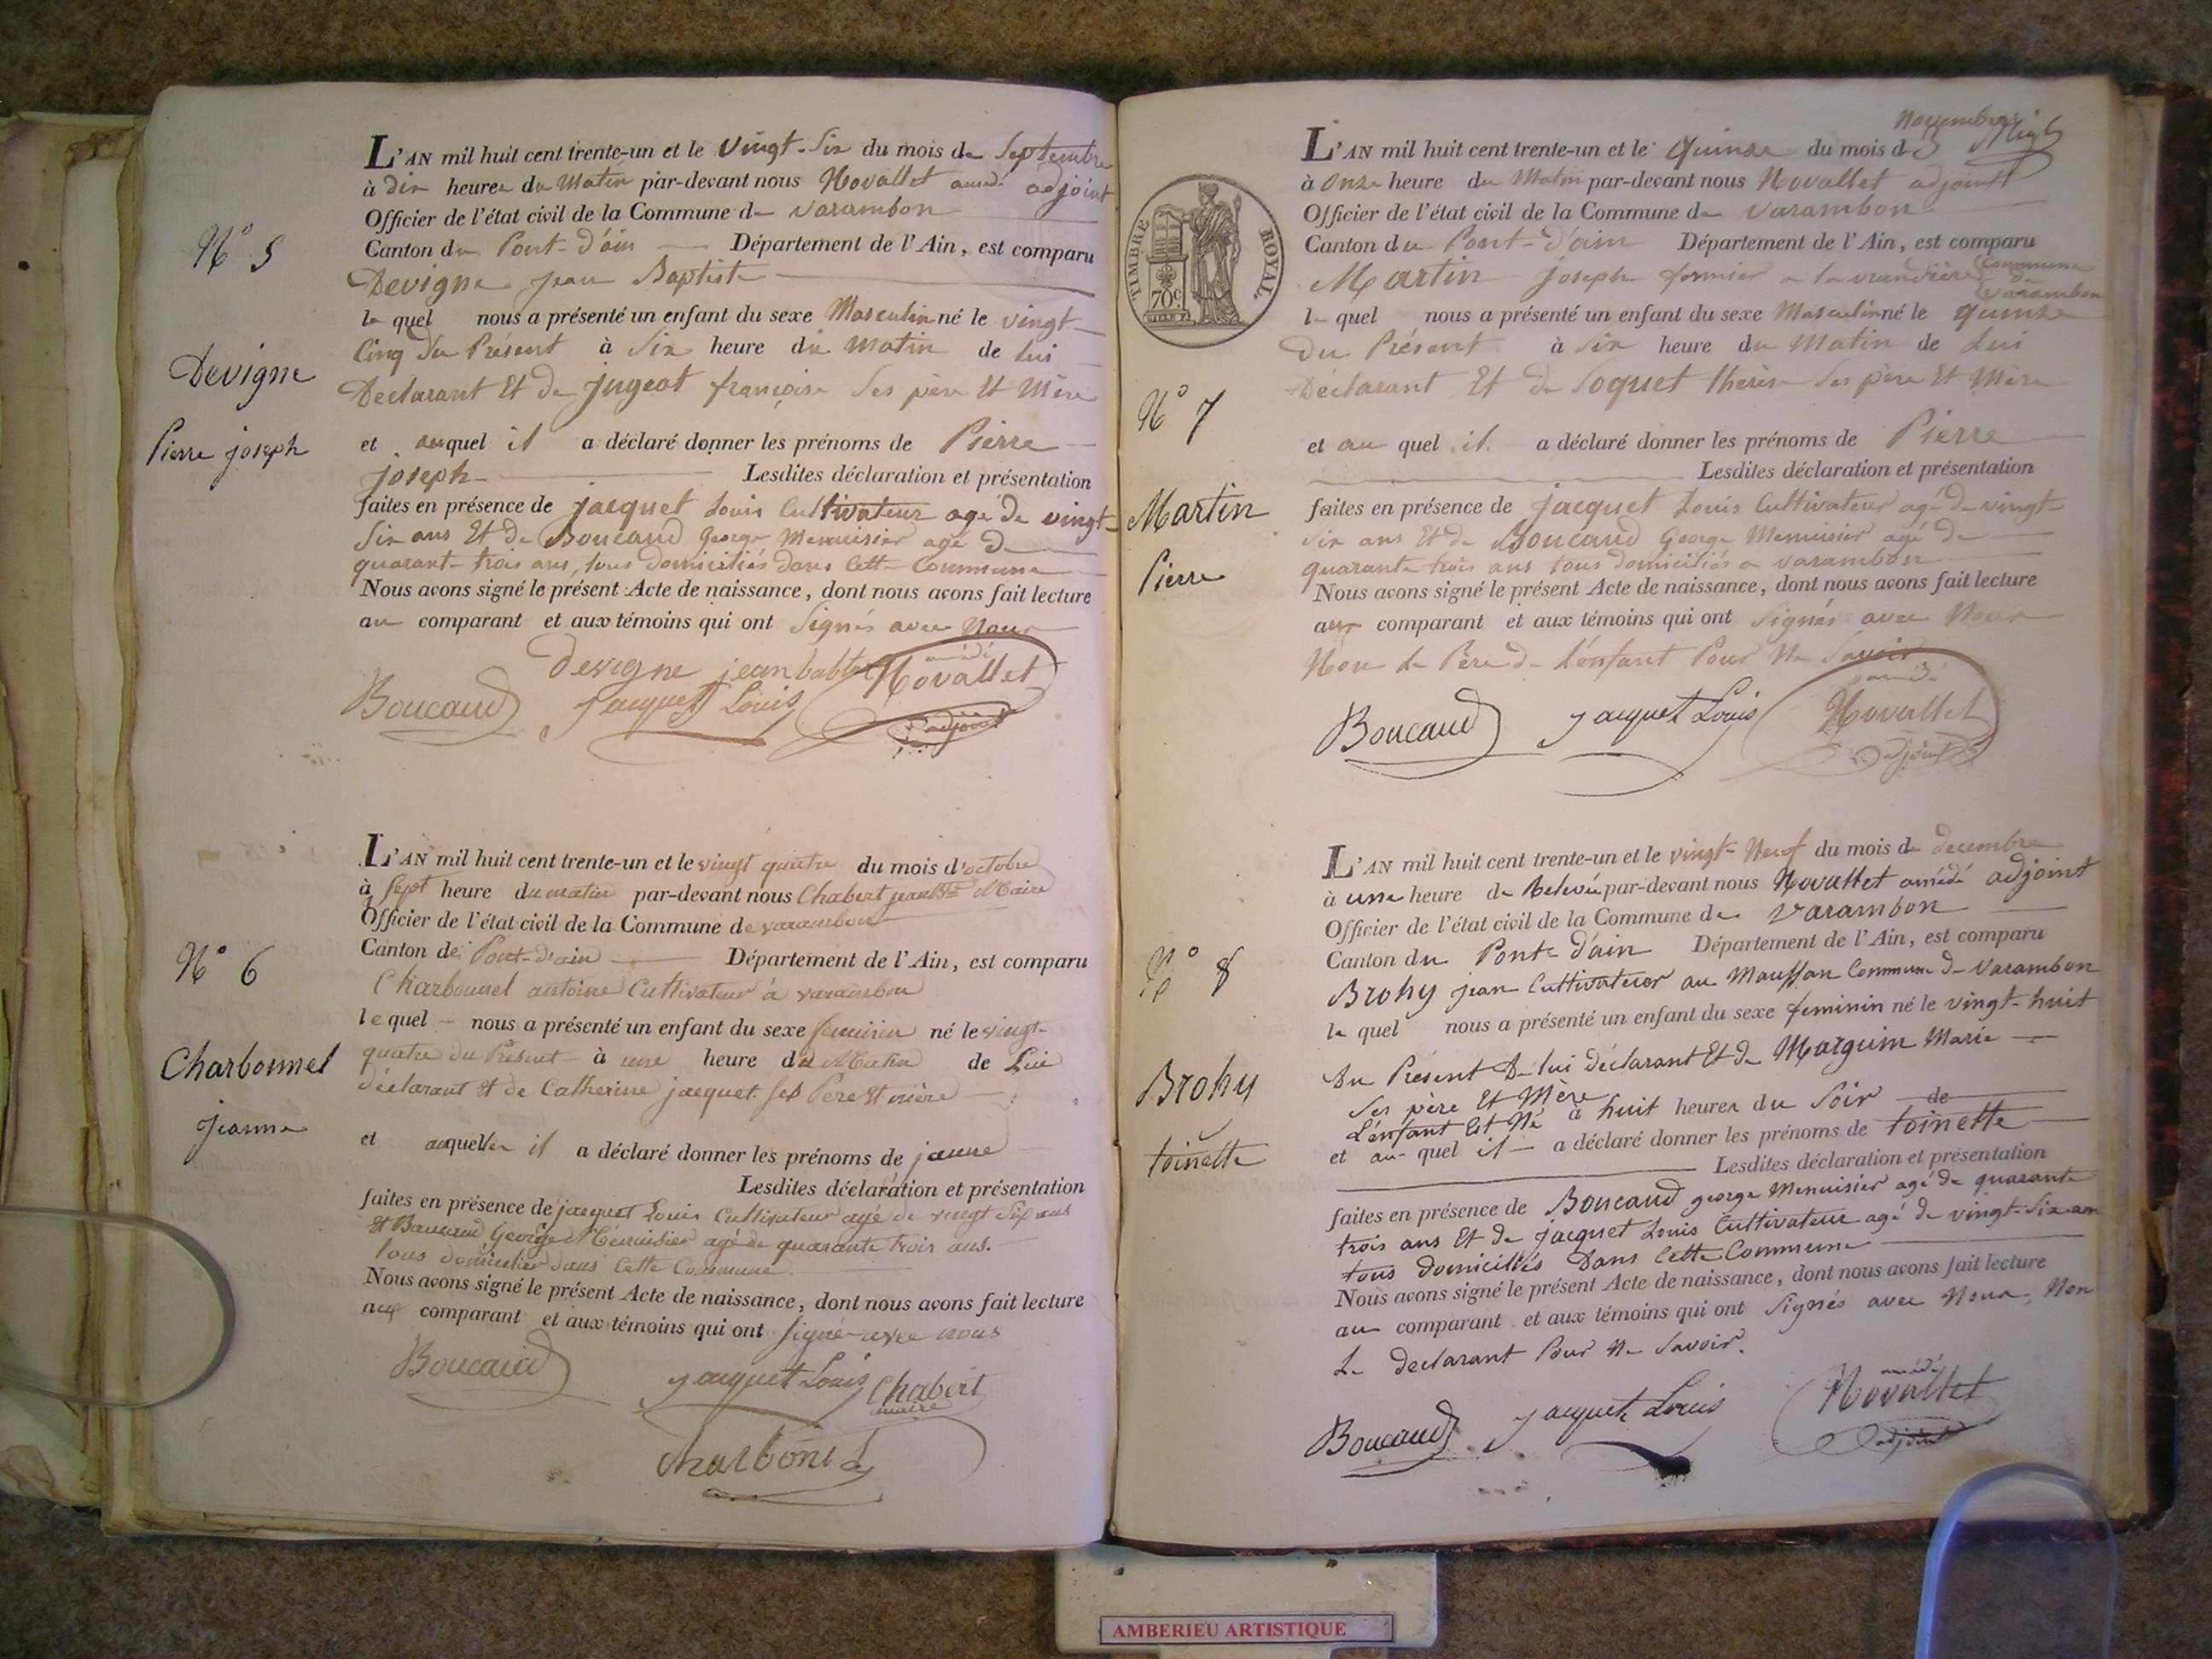 N° 5
Devigne
Pierre joseph
L'AN mil huit cent trente-un et le vingt-six du mois de Septembre
à dix heures du Matin par-devant nous Novallet amédé adjoint
Officier de l'état civil de la Commune de varambon
Canton du Pont-d'ain Département de l'Ain, est comparu
Devigne jean Baptiste
le quel nous a présenté un enfant du sexe Masculin né le vingt
Cinq du Présent à Six heure du matin de lui
Déclarant Et de jugeat françoise Ses père Et Mère
et auquel il a déclaré donner les prénoms de Pierre
joseph Lesdites déclaration et présentation
faites en présence de jacquet Louis Cultivateur agé de vingt-
Six ans Et de Boucaud George Menuisier agé de
quarante-trois ans, tous domiciliés dans Cette Commune
Nous avons signé le présent Acte de naissance, dont nous avons fait lecture
au comparant et aux témoins qui ont Signés avec Nous
devigne jean babtiste
amédé
Novallet
Boucaud jacquet Louis
adjoint
N° 6
Charbonnel
jeanne
L'AN mil huit cent trente-un et le vingt quatre du mois d'octobre
à sept heure du matin par-devant nous Chabert jean Bte Maire
Officier de l'état civil de la Commune de varambon
Canton de Pont-d'ain Département de l'Ain, est comparu
Charbonnel antoine Cultivateur à varambon
le quel nous a présenté un enfant du sexe feminin né le vingt-
quatre du Présent à une heure du Matin de Lui
déclarant et de Catherine jacquet ses Pere et mère
et auquelle il a déclaré donner les prénoms de jeanne
Lesdites déclaration et présentation
faites en présence de jacquet Louis Cultivateur agé de vingt six ans
et Boucaud George Menuisier agé de quarante trois ans.
tous domicilier dans Cette Commune
Nous avons signé le présent Acte de naissance, dont nous avons fait lecture
aux comparant et aux témoins qui ont signé avec nous
Boucaud jacquet Louis Chabert
maire
charbonel
TIMBRE ROYAL
70c
N° 7
Martin
Pierre
Novembre
L'AN mil huit cent trente-un et le quinze du mois de
à Onze heure du Matin par-devant nous Novallet adjoint
Officier de l'état civil de la Commune de varambon
Canton du Pont-d'ain Département de l'Ain, est comparu
Martin joseph fermier a la Commune
de varambon
le quel nous a présenté un enfant du sexe Masculin né le quinze
du Présent à Six heure du Matin de Lui
Déclarant Et de Soquet therèse Ses père Et Mère
et au quel il a déclaré donner les prénoms de Pierre
Lesdites déclaration et présentation
faites en présence de jacquet Louis Cultivateur agé de vingt
Six ans Et de Boucaud George Menuisier agé de
quarante trois ans tous domiciliés a varambon
Nous avons signé le présent Acte de naissance, dont nous avons fait lecture
aux comparant et aux témoins qui ont Signés avec Nous
Non le Père de L'enfant Pour Ne Savoir
amédé
Boucaud jacquet Louis Novallet
adjoint
N° 8
Brohy
toinette
L'AN mil huit cent trente-un et le vingt-Neuf du mois de decembre
à une heure de Relevée par-devant nous Novallet amédé adjoint
Officier de l'état civil de la Commune de Varambon
Canton du Pont-d'ain Département de l'Ain, est comparu
Brohy jean Cultivateur au Maussan Commune de Varambon
le quel nous a présenté un enfant du sexe feminin né le vingt-huit
du Présent De lui déclarant Et de Marguin Marie
Ses père Et Mère
L'enfant Est Né à huit heures du Soir de
et au quel il a déclaré donner les prénoms de toinette
Lesdites déclaration et présentation
faites en présence de Boucaud george Menuisier agé de quarante
trois ans Et de jacquet Louis Cultivateur agé de vingt-Six ans
tous domiciliés Dans Cette Commune
Nous avons signé le présent Acte de naissance, dont nous avons fait lecture
au comparant et aux témoins qui ont Signés avec Nous, Non
Le declarant Pour Ne Savoir.
amédé
Boucaud jacquet Louis Novallet
adjoint
AMBERIEU ARTISTIQUE